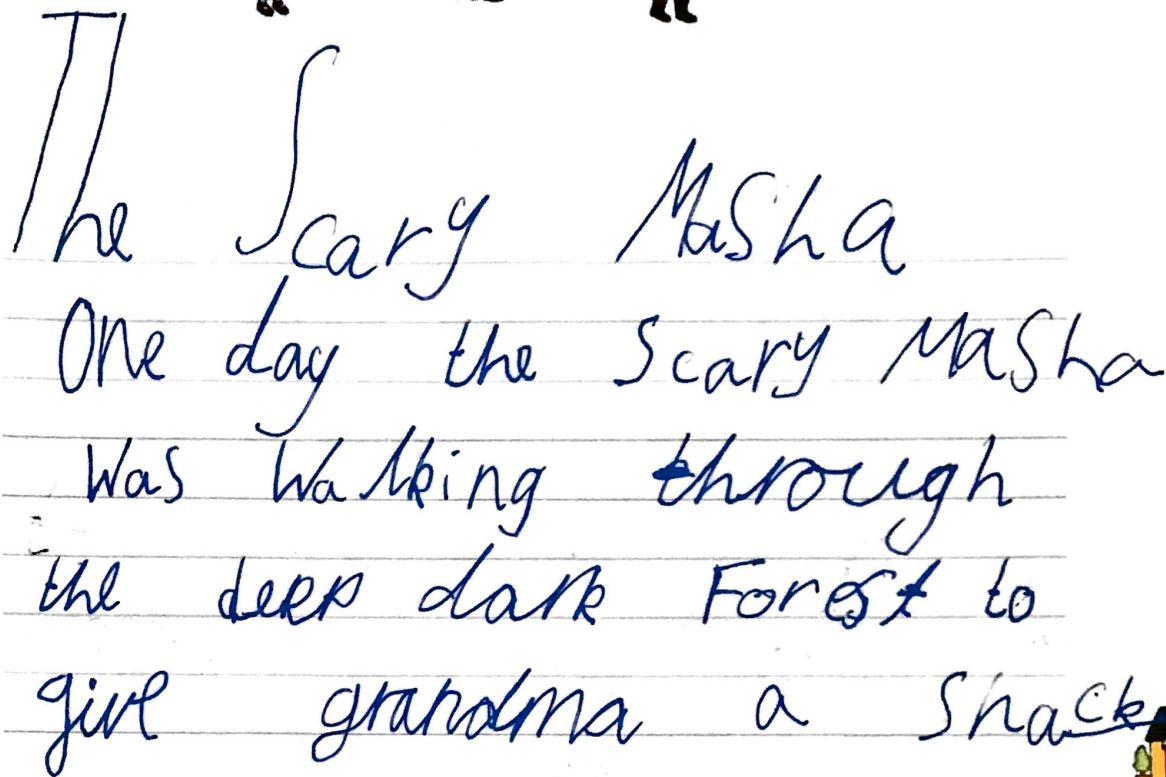 The Scary Masha
One day the Scary Masha
Was Walking through
the deep dark Forest to
give grandma a Snack